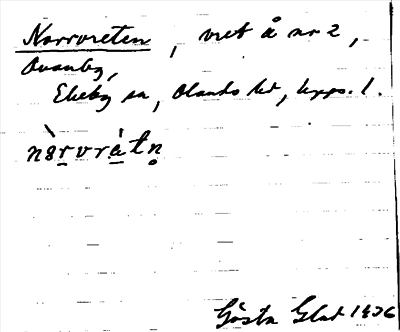 Norrvreten, vret å nr 2,
Ovanby,
Ekeby sn, Olands hd, Upps. l.
nòrvràtn
Gösta Glad 1936